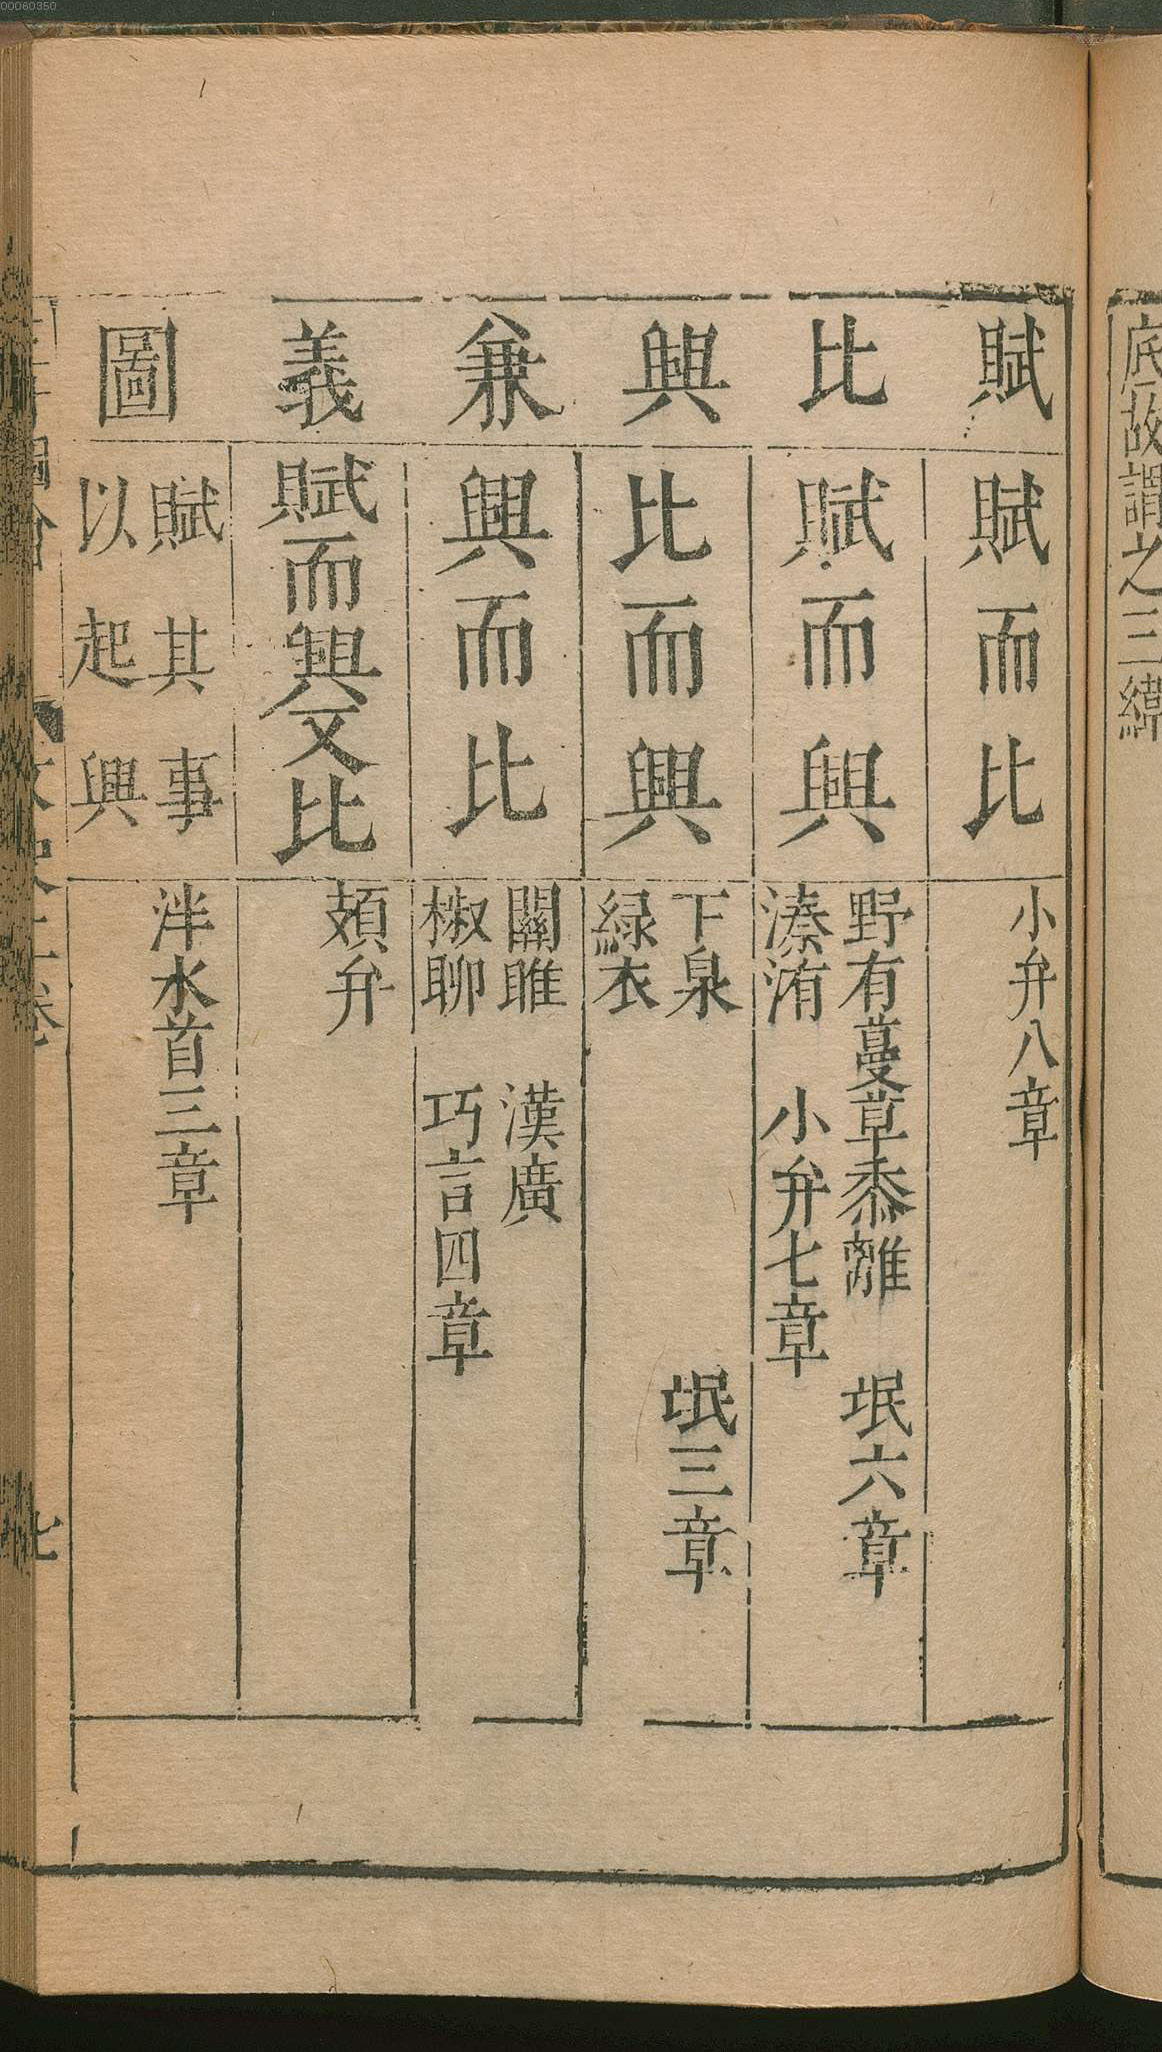 00060350
底故謂之三緯
賦比興兼義圖
賦而比
小弁八章
賦而興
野有蔓草黍離 氓六章
溱洧 小弁七章
比而興
下泉 氓三章
綠衣
興而比
關雎 漢廣
椒聊 巧言四章
賦而興又比
頍弁
賦其事
以起興
泮水首三章
七